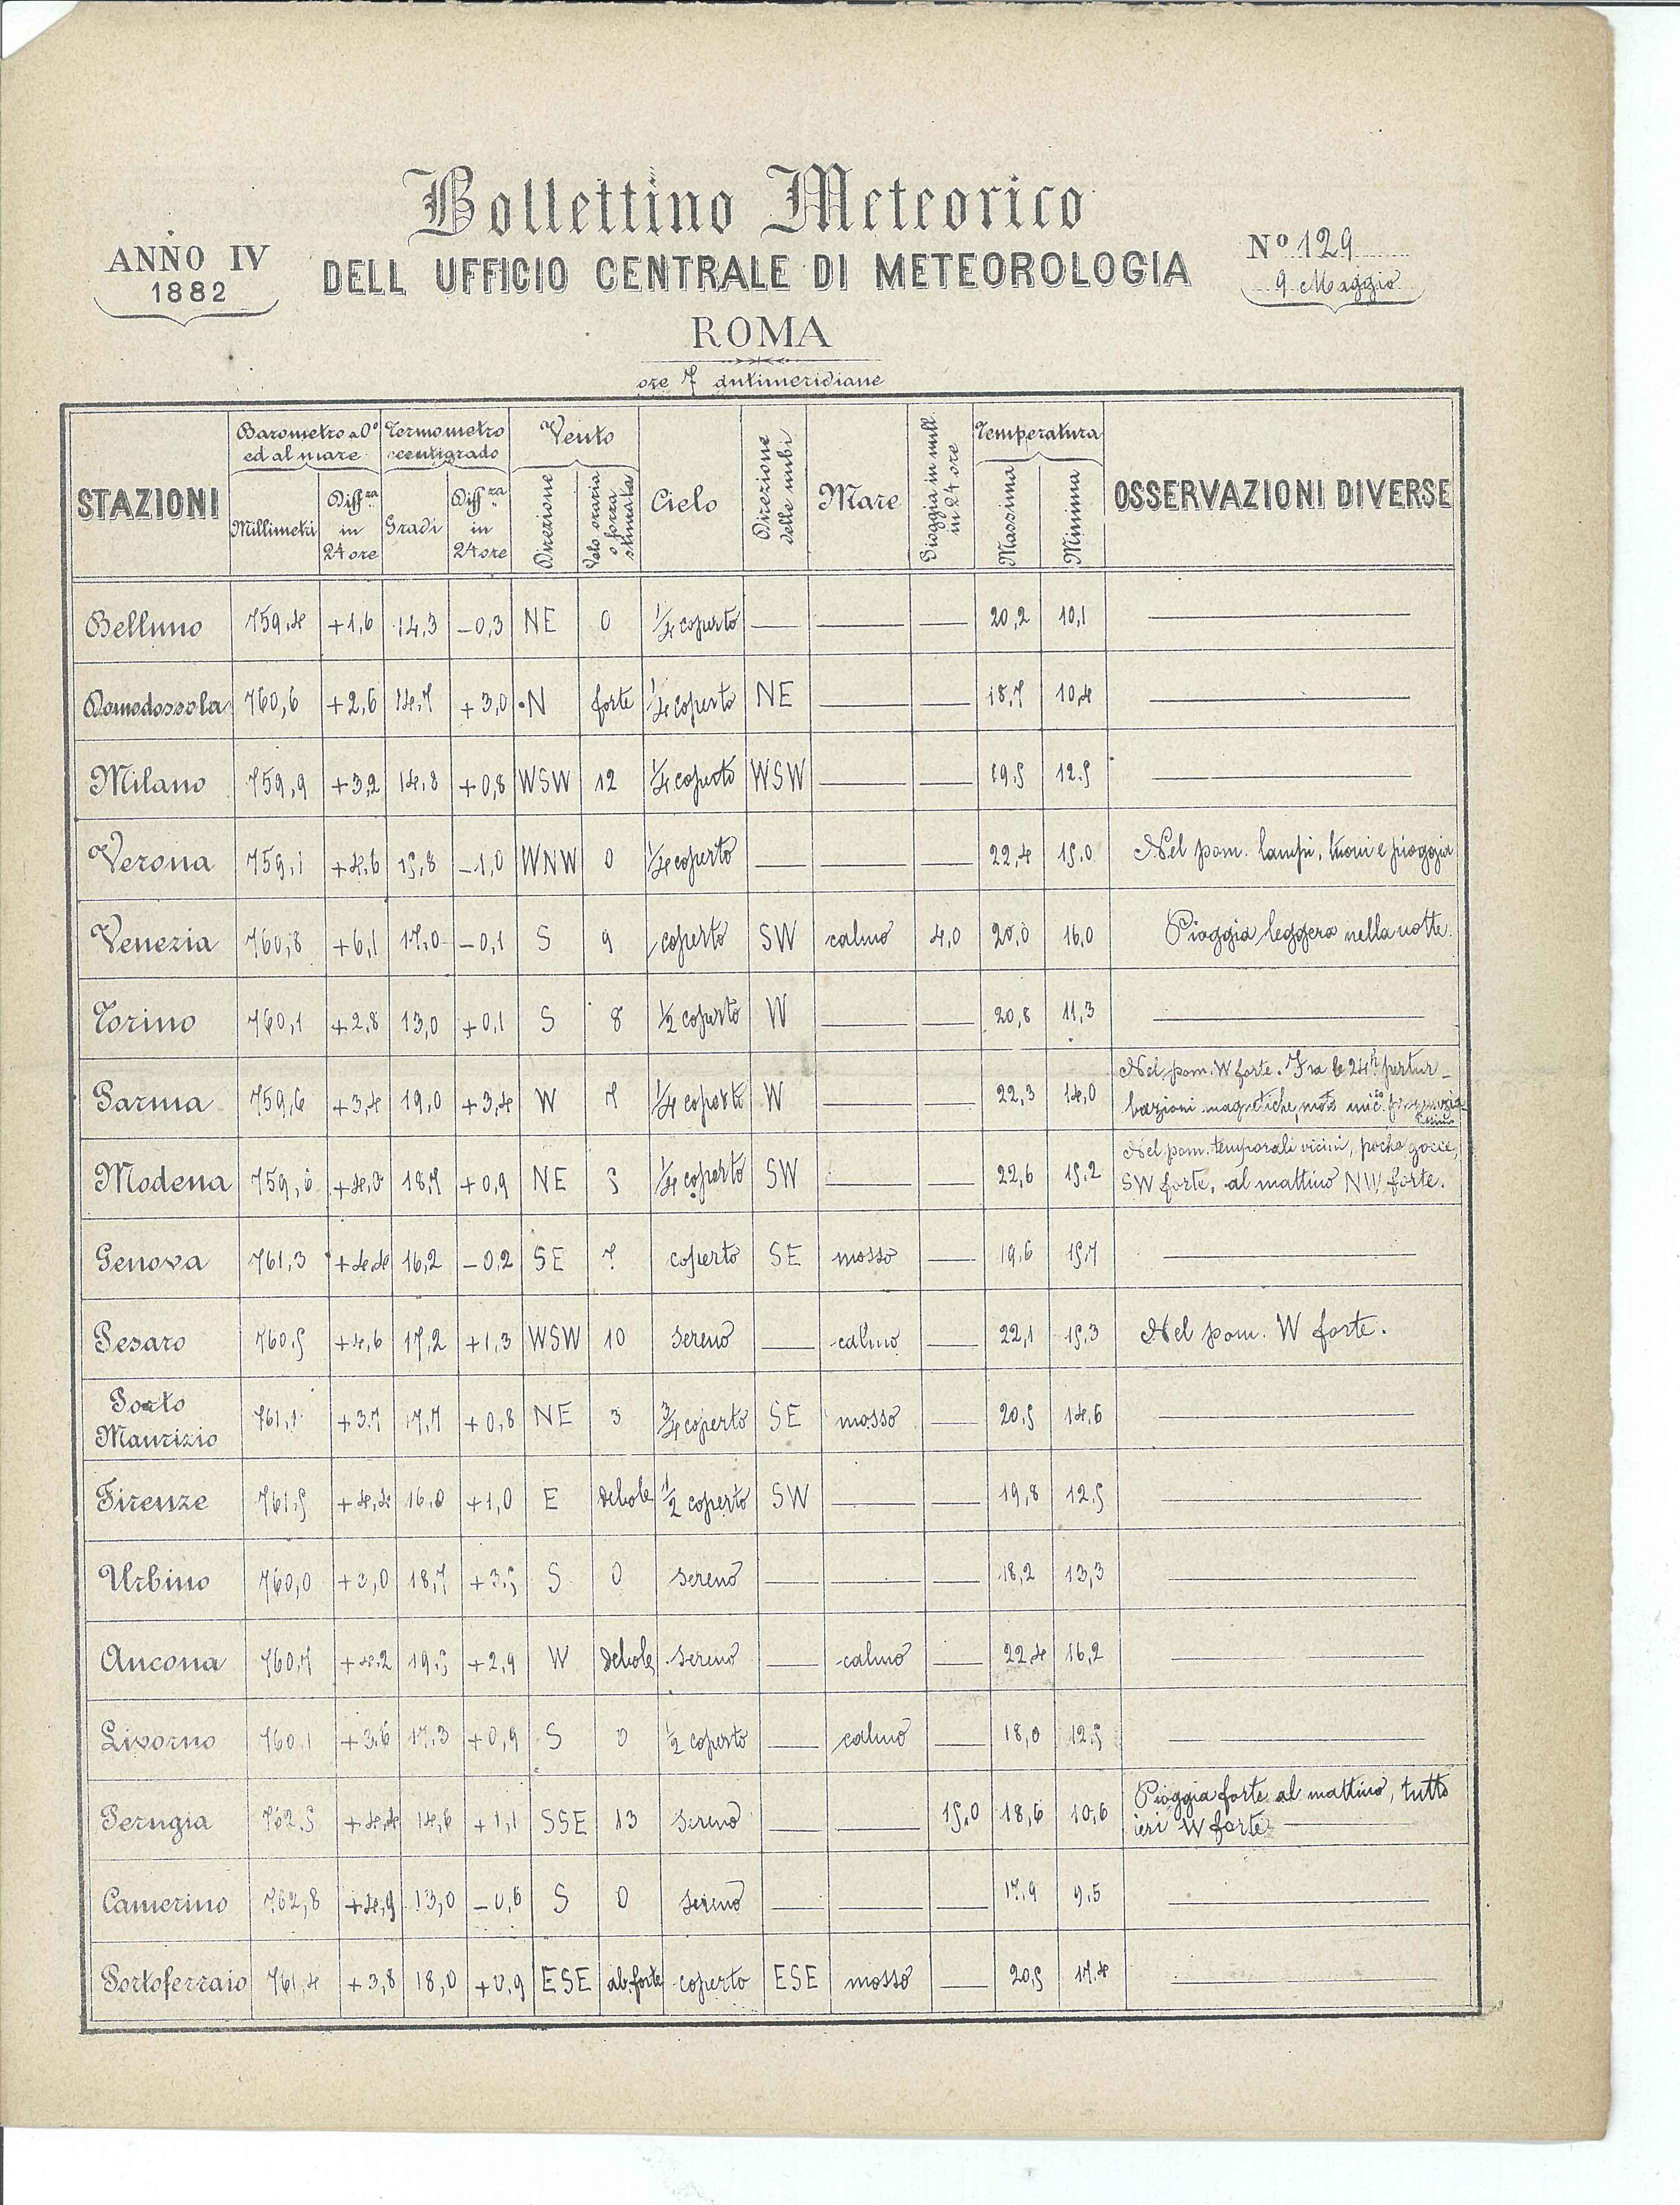 Bollettino Meteorico
ANNO IV
1882
DELL UFFICIO CENTRALE DI METEOROLOGIA
Nº 129
9 Maggio
ROMA
ore 7 antimeridiane
STAZIONI | Barometro a 0º ed al mare | Termometro centigrado | Vento | Cielo | Direzione delle nubi | Mare | Pioggia in mill. in 24 ore | Temperatura | OSSERVAZIONI DIVERSE
Millimetri | Diffza in 24 ore | Gradi | Diffza in 24 ore | Direzione | Velo. oraria o forza stimata | Massima | Minima
Belluno 759,4 +1,6 14,3 −0,3 NE 0 1/4 coperto — — — 20,2 10,1 —
Domodossola 760,6 +2,6 14,7 +3,0 N forte 1/4 coperto NE — — 18,7 10,4 —
Milano 759,9 +3,2 14,8 +0,8 WSW 12 1/4 coperto WSW — — 19.5 12.5 —
Verona 759,1 +4,6 15,8 −1,0 WNW 0 1/4 coperto — — — 22,4 15,0 Nel pom. lampi, tuoni e pioggia
Venezia 760,8 +6,1 17,0 −0,1 S 9 coperto SW calmo 4,0 20,0 16,0 Pioggia leggera nella notte.
Torino 760,1 +2,8 13,0 +0,1 S 8 1/2 coperto W — — 20,8 11,3 —
Parma 759,6 +3,4 19,0 +3,4 W 7 1/4 coperto W — — 22,3 14,0 Nel pom. W forte. Fra le 24h pertur-
bazioni magnetiche, moto
Modena 759,6 +4,0 18,7 +0,9 NE 5 1/4 coperto SW — — 22,6 15,2 Nel pom. temporali vicini, poche gocce,
SW forte, al mattino NW forte.
Genova 761,3 +4,4 16,2 −0,2 SE 7 coperto SE mosso — 19,6 15,7 —
Pesaro 760,5 +4,6 17,2 +1,3 WSW 10 sereno — calmo — 22,1 15,3 Nel pom. W forte.
Porto
Maurizio 761,1 +3,7 17,7 +0,8 NE 3 3/4 coperto SE mosso — 20,5 14,6 —
Firenze 761,5 +4,4 16,0 +1,0 E debole 1/2 coperto SW — — 19,8 12,5 —
Urbino 760,0 +3,0 18,7 +3,5 S 0 sereno — — — 18,2 13,3 —
Ancona 760,7 +4,2 19,5 +2,9 W debole sereno — calmo — 22,4 16,2 —
Livorno 760,1 +3,6 17,3 +0,9 S 0 1/2 coperto — calmo — 18,0 12,5 —
Perugia 762,5 +4,4 14,6 +1,1 SSE 13 sereno — — 15,0 18,6 10,6 Pioggia forte al mattino, tutto
ieri W forte —
Camerino 762,8 +4,9 13,0 −0,6 S 0 sereno — — — 17,9 9,5 —
Portoferraio 761,4 +3,8 18,0 +0,9 ESE ab.forte coperto ESE mosso — 20,5 17,4 —